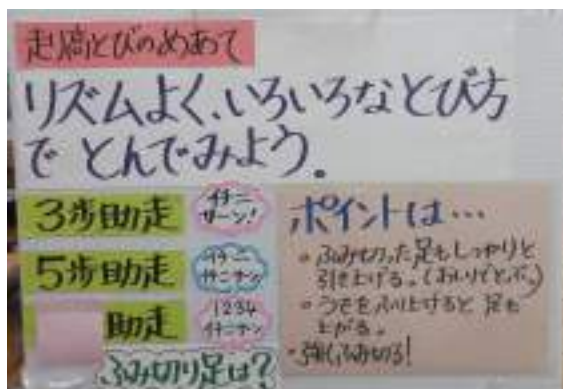 走高とびのめあて
リズムよく、いろいろなとび方
で とんでみよう。
3歩助走
イチニ
サーン!
5歩助走
イチニ
イチニサン
助走
1234
イチニサン
ふみ切り足は?
ポイントは…
・ふみ切った足もしっかりと
引き上げる。(おしりでとぶ。)
・うでをふり上げると 足も
上がる。
・強くふみ切る!